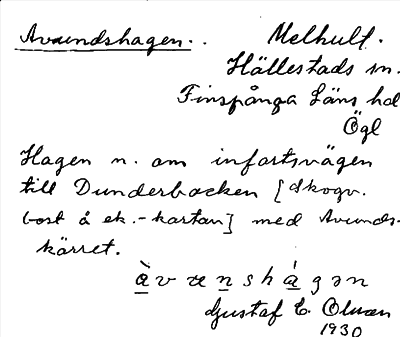 Avundshagen.
Melhult.
Hällestads sn.
Finspånga Läns hd
Ögl
Hagen n. om infartsvägen
till Dunderbacken [skogv.
bost å ek.-kartan] med Avunds-
kärret.
àvænshágən
Gustaf E. Olsson
1930